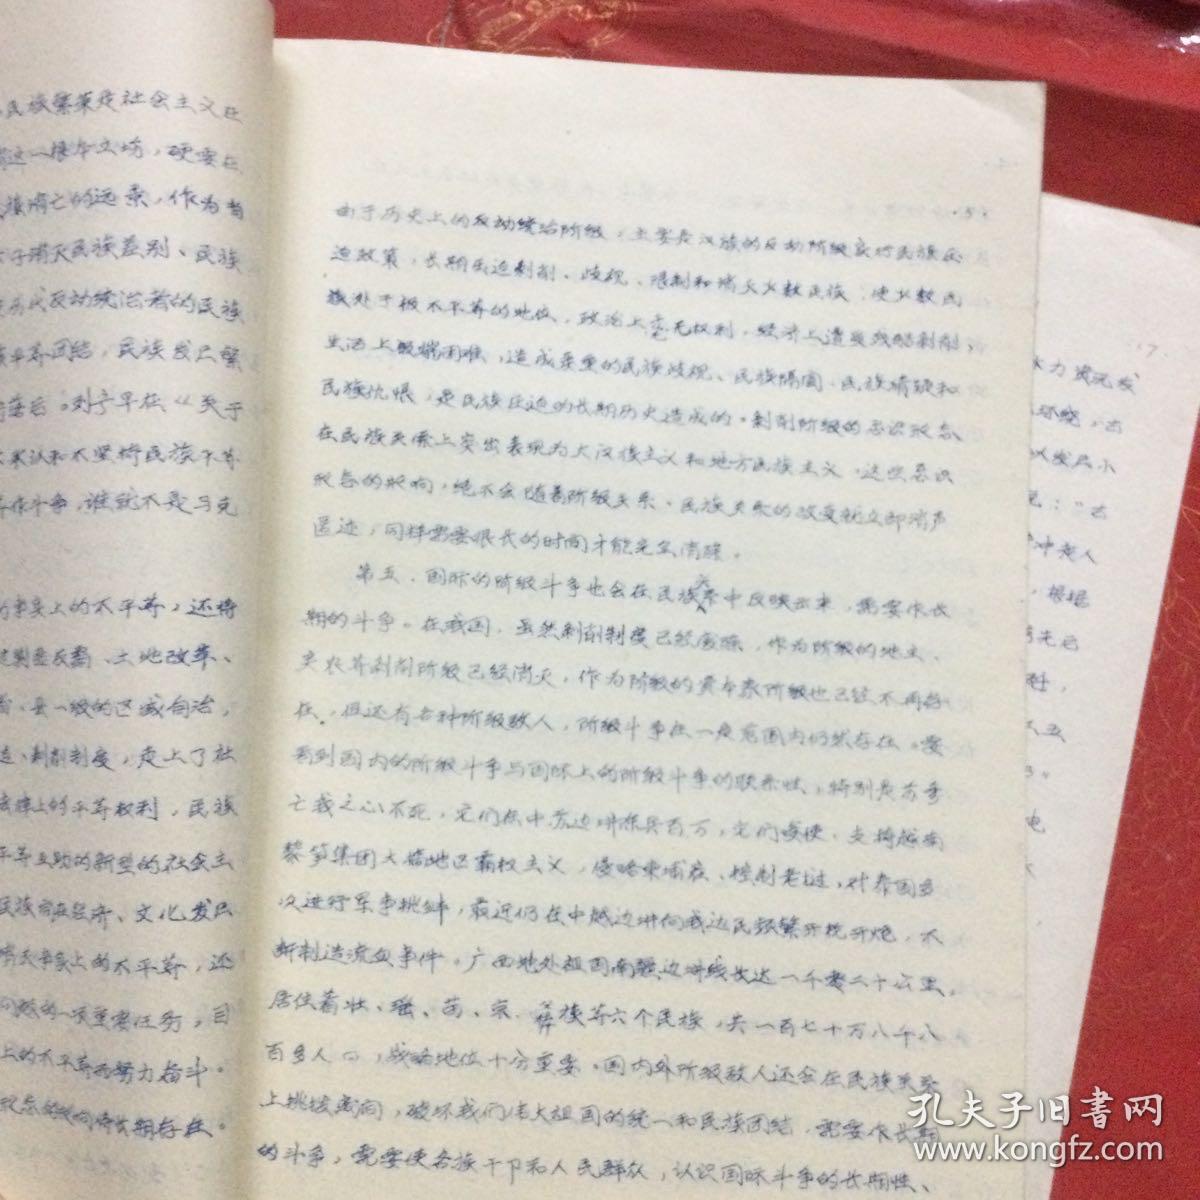 、民族繁荣是社会主义在
这一根本立场，硬要在
族消亡的远景，作为当
于消灭民族差别、民族
历代反动统治者的民族
平等团结，民族发展繁
落后。刘少早在《关于
承认和不坚持民族平等
作斗争，谁就不是马克
事实上的不平等，还将
土地改革、
县一级的区域自治，
剥削制度，走上了社
法律上的平等权利，民族
平等互助的新型的社会主
民族的在经济、文化发展
消灭事实上的不平等，还
问题的一项重要任务，目
上的不平等而努力奋斗。
长期存在。
·5·
由于历史上的反动统治阶级，主要是汉族的反动阶级实行民族压
迫政策，长期压迫剥削、歧视、限制和消灭少数民族，使少数民
族处于极不平等的地位，政治上毫无权利，经济上遭受残酷剥削，
生活上极端困难，造成严重的民族歧视、民族隔阂、民族猜疑和
民族仇恨，是民族压迫的长期历史造成的。剥削阶级的意识形态
在民族关系上突出表现为大汉族主义和地方民族主义。这些意识
形态的影响，绝不会随着阶级关系、民族关系的改变就立即消声
匿迹，同样需要很长的时间才能完全消除。
第五，国际的阶级斗争也会在民族关系中反映出来，需要作长
期的斗争。在我国，虽然剥削制度已经废除，作为阶级的地主、
富农等剥削阶级已经消灭，作为阶级的资本家阶级也已经不再存
在，但还有各种阶级敌人，阶级斗争在一定范围内仍然存在。要
看到国内的阶级斗争与国际上的阶级斗争的联系性，特别是苏修
亡我之心不死，它们在中苏边境陈兵百万，它们唆使、支持越南
黎笋集团大搞地区霸权主义，侵略柬埔寨、控制老挝，对泰国多
次进行军事挑衅，最近仍在中越边境向我边民频繁开枪开炮，不
断制造流血事件。广西地处祖国南疆边境线长达一千零二十公里，
居住着壮、瑶、苗、京、彝族等六个民族，共一百七十万八千八
百多人口，战略地位十分重要。国内外阶级敌人还会在民族关系
上挑拨离间，破坏我们伟大祖国的统一和民族团结，需要作长期
的斗争，需要使各族干卩和人民群众，认识国际斗争的长期性、
·7
水力资源发
环绕，古
以发展小
：“古
冲走人
，根据
孔夫子旧书网
www.kongfz.com